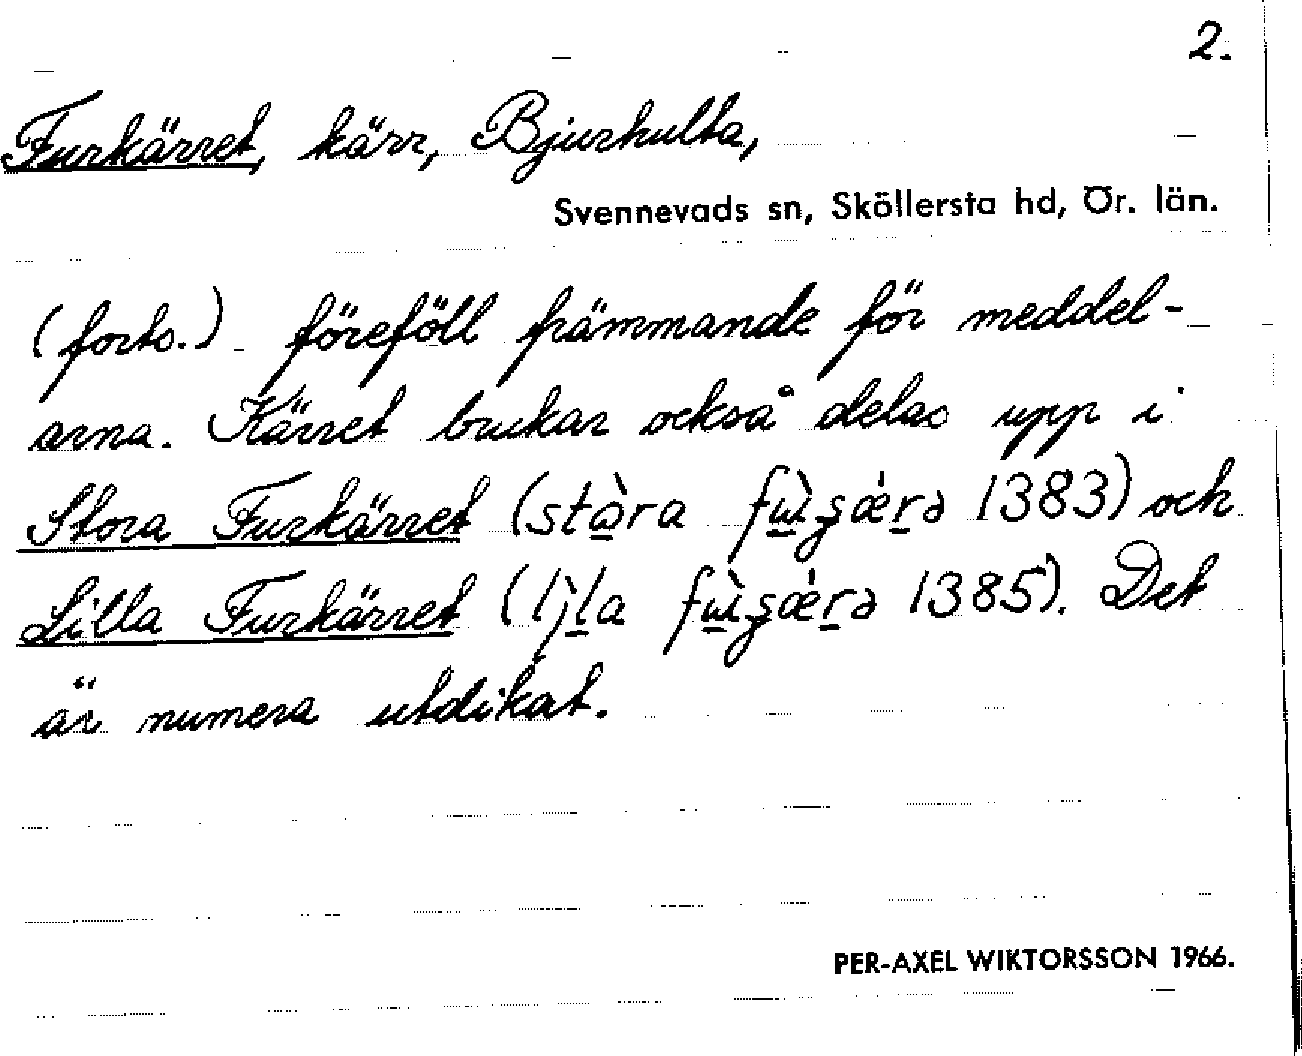 2.
Furkärret, kärr, Bjurhulta,
Svennevads sn, Sköllersta hd, Ör. län.
(forts.) föreföll främmande för meddel-
arna. Kärret brukar också delas upp i
Stora Furkärret (stàra 1383) och
Lilla Furkärret ( 1385). Det
är numera utdikat.
PER-AXEL WIKTORSSON 1966.